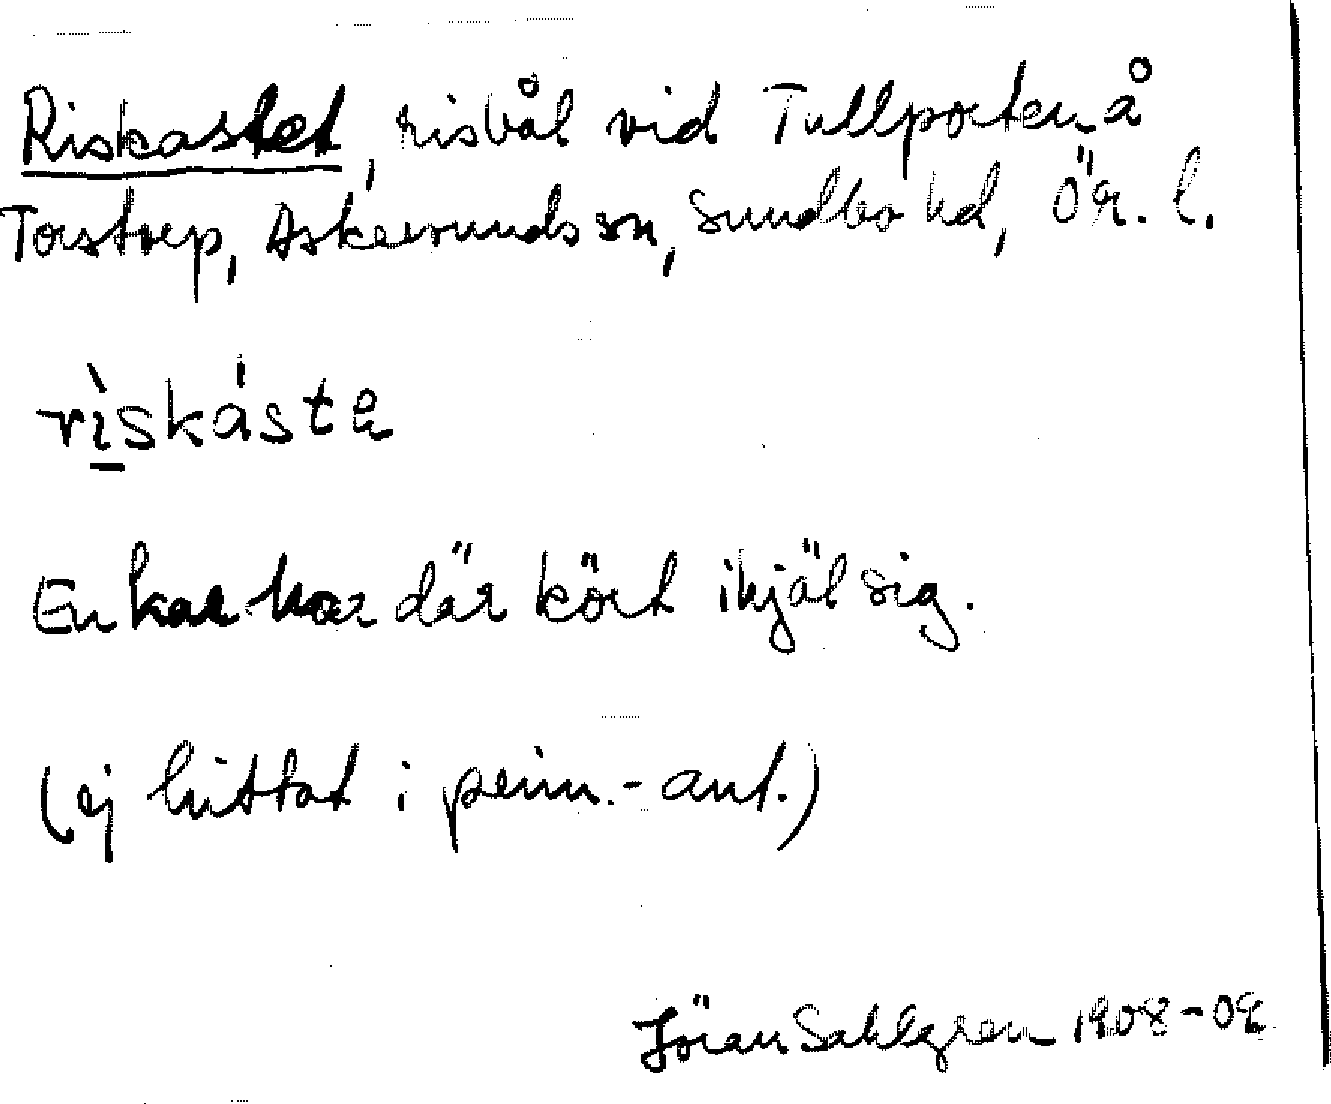 Riskastet, risbål vid Tullporten å
Torstorp, Askersunds sn, Sundbo hd, Ör. l.
rìskásta
En kar har där kört ihjäl sig.
(ej hittat i penn.-ant.)
Jöran Sahlgren 1908-09